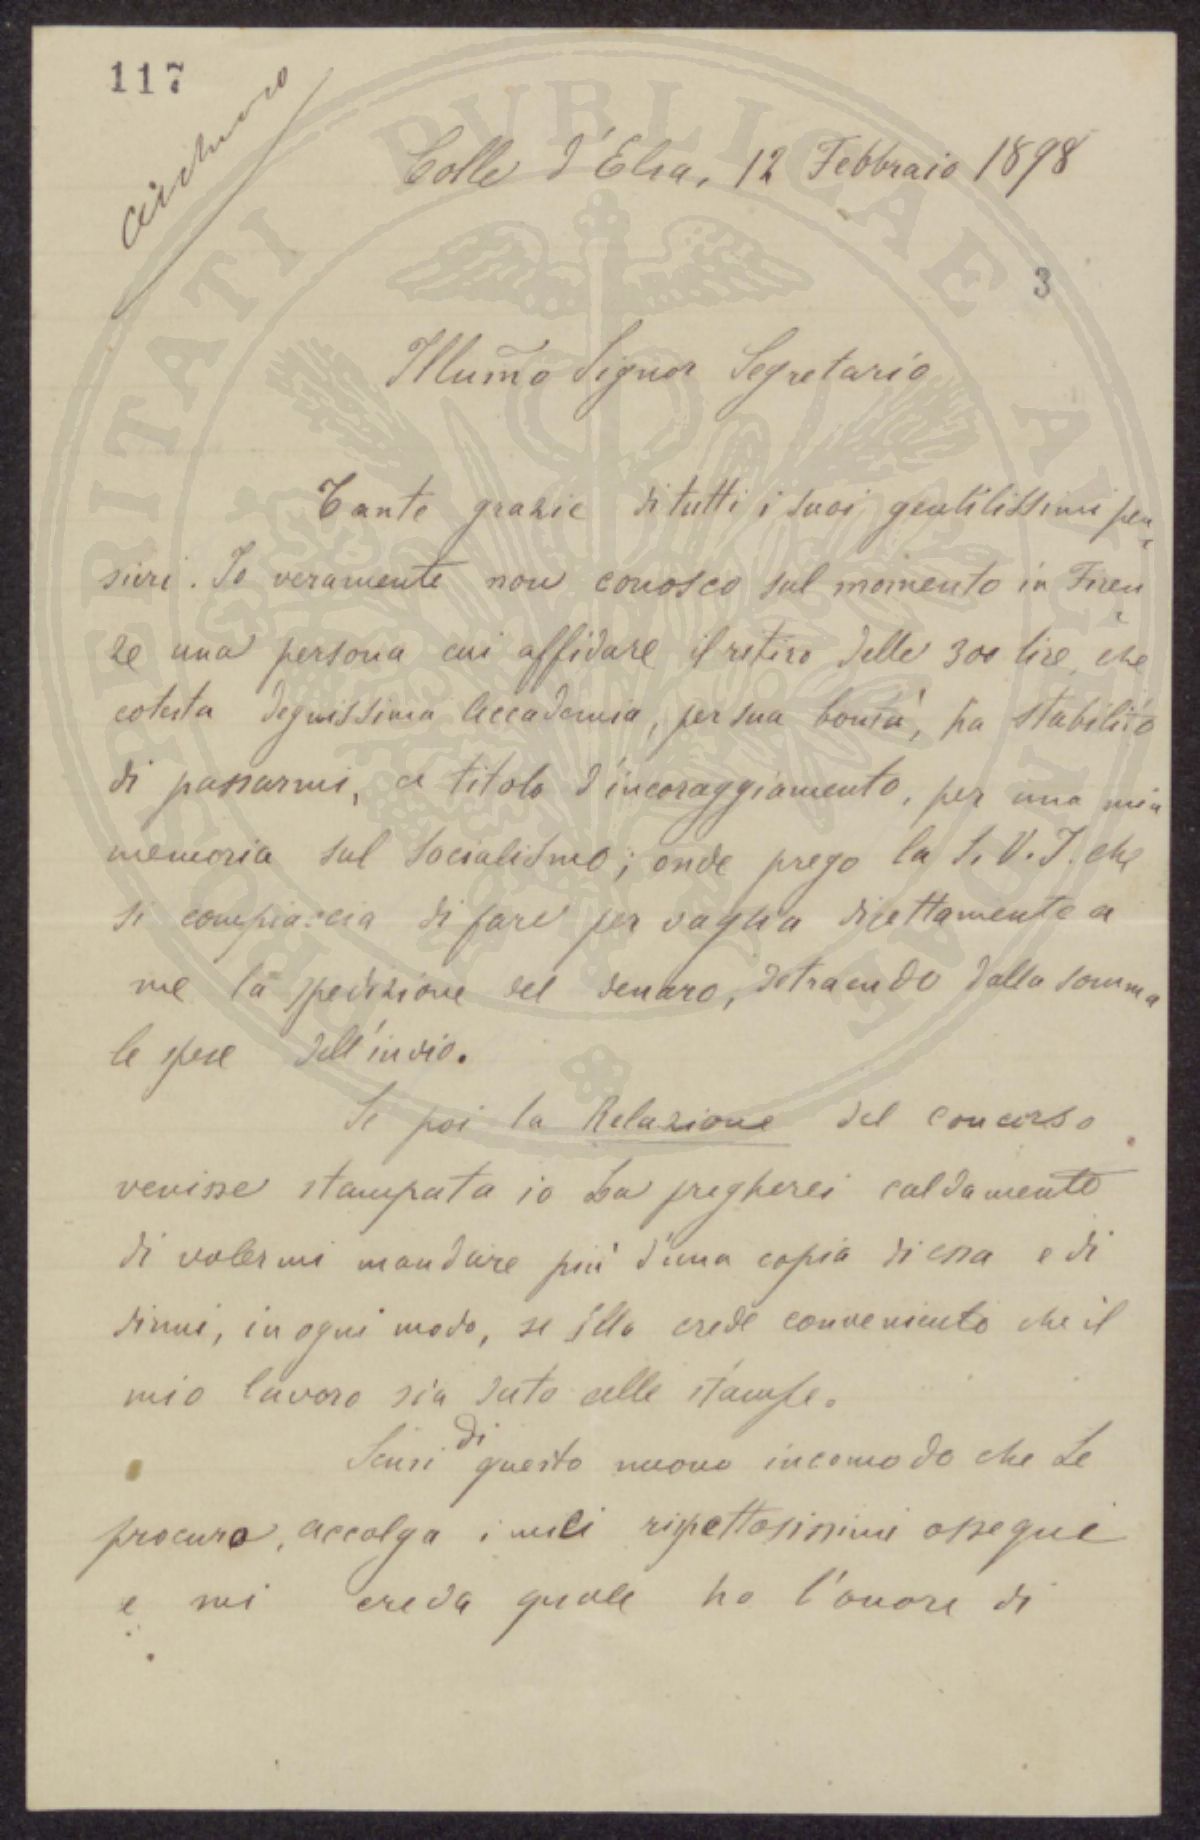 117
Colle d'Elsa, 12 Febbraio 1898
3
Illumo Signor Segretario
Tante grazie di tutti i suoi gentilissimi pen-
sieri. Io veramente non conosco sul momento in Firen-
ze una persona cui affidare il ritiro delle 300 lire, che
cotesta degnissima Accademia, per sua bontà, ha stabilito
di passarmi, a titolo d'incoraggiamento, per una mia
memoria sul socialismo; onde prego la S. V. I. che
si compiaccia di fare per vaglia direttamente a
me la spedizione del denaro, detraendo dalla somma
le spese dell'invio.
Se poi la Relazione del concorso
venisse stampata io La pregherei caldamente
di volermi mandare più d'una copia di essa e di
dirmi, in ogni modo, se Ella crede conveniente che il
mio lavoro sia dato alle stampe.
Scusi di questo nuovo incomodo che Le
procuro, accolga i miei rispettosissimi ossequi
e mi creda quale ho l'onore di
PROSPERITATI PUBLICAE AUGENDAE